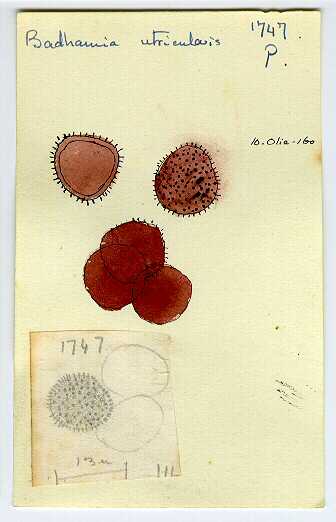 Badhamia utricularis
1747
P.
10. Olie - 160
1747
13 u